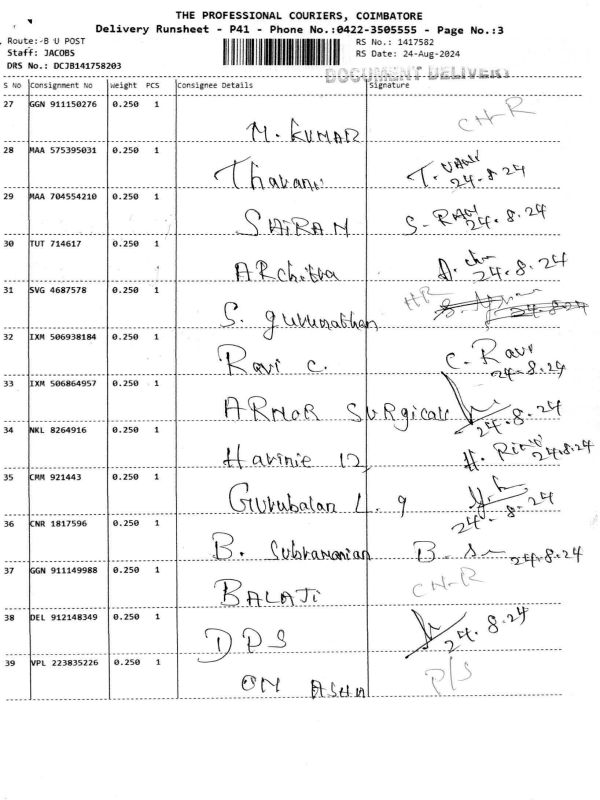 THE PROFESSIONAL COURIERS, COIMBATORE
Delivery Runsheet - P41 - Phone No.:0422-3505555 - Page No.:3
Route:-B U POST RS No.: 1417582
Staff: JACOBS RS Date: 24-Aug-2024
DRS No.: DCJB141758203
DOCUMENT DELIVERY
S No Consignment No Weight PCS Consignee Details Signature
27 GGN 911150276 0.250 1
M. KUMAR CN-R
28 MAA 575395031 0.250 1
Tharani T. 24-8-24
29 MAA 704554210 0.250 1
SAIRAM S. RAM 24.8.24
30 TUT 714617 0.250 1
ARchitha A. 24-8-24
31 SVG 4687578 0.250 1
S. gurunathan HR 24.8.24
32 IXM 506938184 0.250 1
Ravi C. C. Ravi 24-8.24
33 IXM 506864957 0.250 1
ARMOR SURgicals 24.8.24
34 NKL 8264916 0.250 1
Harinie 12 H. 24.8.24
35 CMM 921443 0.250 1
Gurubalan L. 9 24-8-24
36 CNR 1817596 0.250 1
B. Subramanian B. 24-8-24
37 GGN 911149988 0.250 1
BALAJI CN-R
38 DEL 912148349 0.250 1
DPS 24.8.24
39 VPL 223835226 0.250 1
OM ASHA P/S